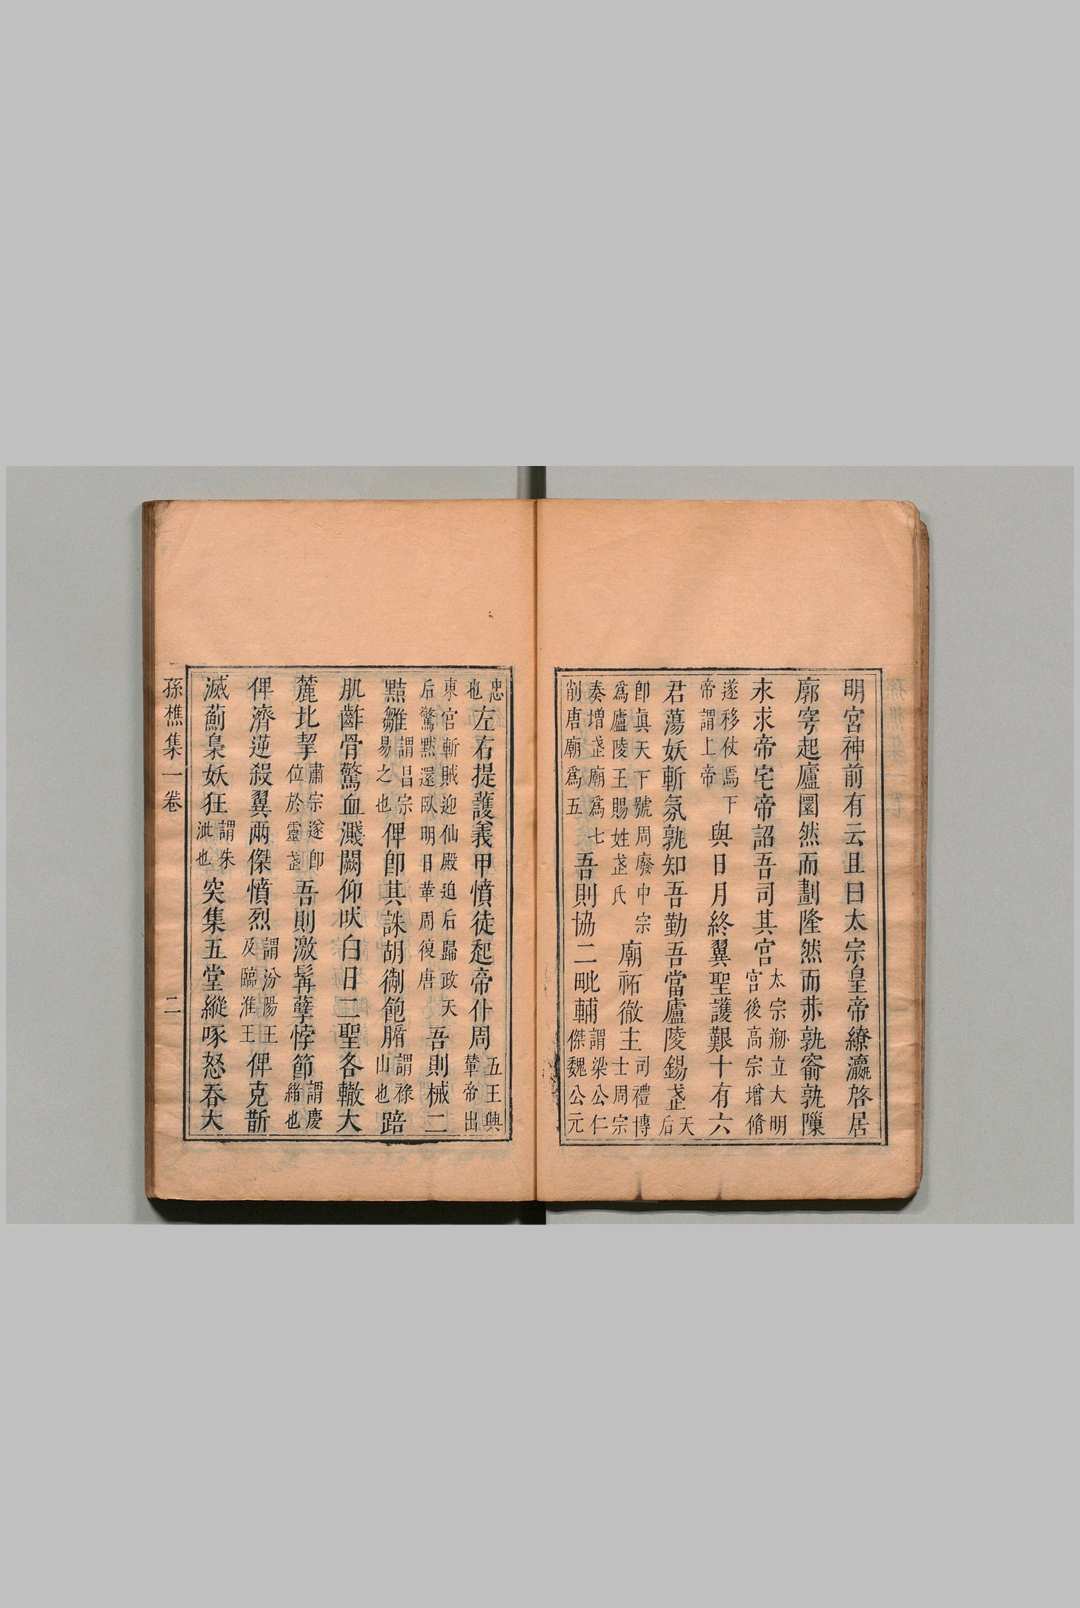 明宮神前有云且曰太宗皇帝繚瀛啓居
廓穹起廬圜然而劃隆然而赫孰窬孰隟
永求帝宅帝詔吾司其宮太宗剏立大明宮後高宗增脩
遂移仗焉下帝謂上帝與日月終翼聖護艱十有六
君蕩妖斬氛孰知吾勤吾當廬陵錫武天后
即眞天下號周廢中宗爲廬陵王賜姓武氏廟祏徹主司禮博士周宗
奏增武廟爲七削唐廟爲五吾則協二毗輔謂梁公仁傑魏公元
忠也左右提護義甲憤徒起帝仆周五王興輦帝出
東官斬賊迎仙殿迫后歸政天后驚黙還臥明日革周復唐吾則械二
黠雛謂昌宗易之也俾即其誅胡飽脂謂祿山也踣
肌齰骨驚血濺闕仰吠白日二聖各轍大
麓北挐肅宗遂即位於靈武吾則激髯孽悖節謂慶緒也
俾濟逆殺翼兩傑憤烈謂汾陽王及臨淮王俾克斮
滅薊梟妖狂謂朱泚也突集五堂縱啄怒吞大
孫樵集一卷 二